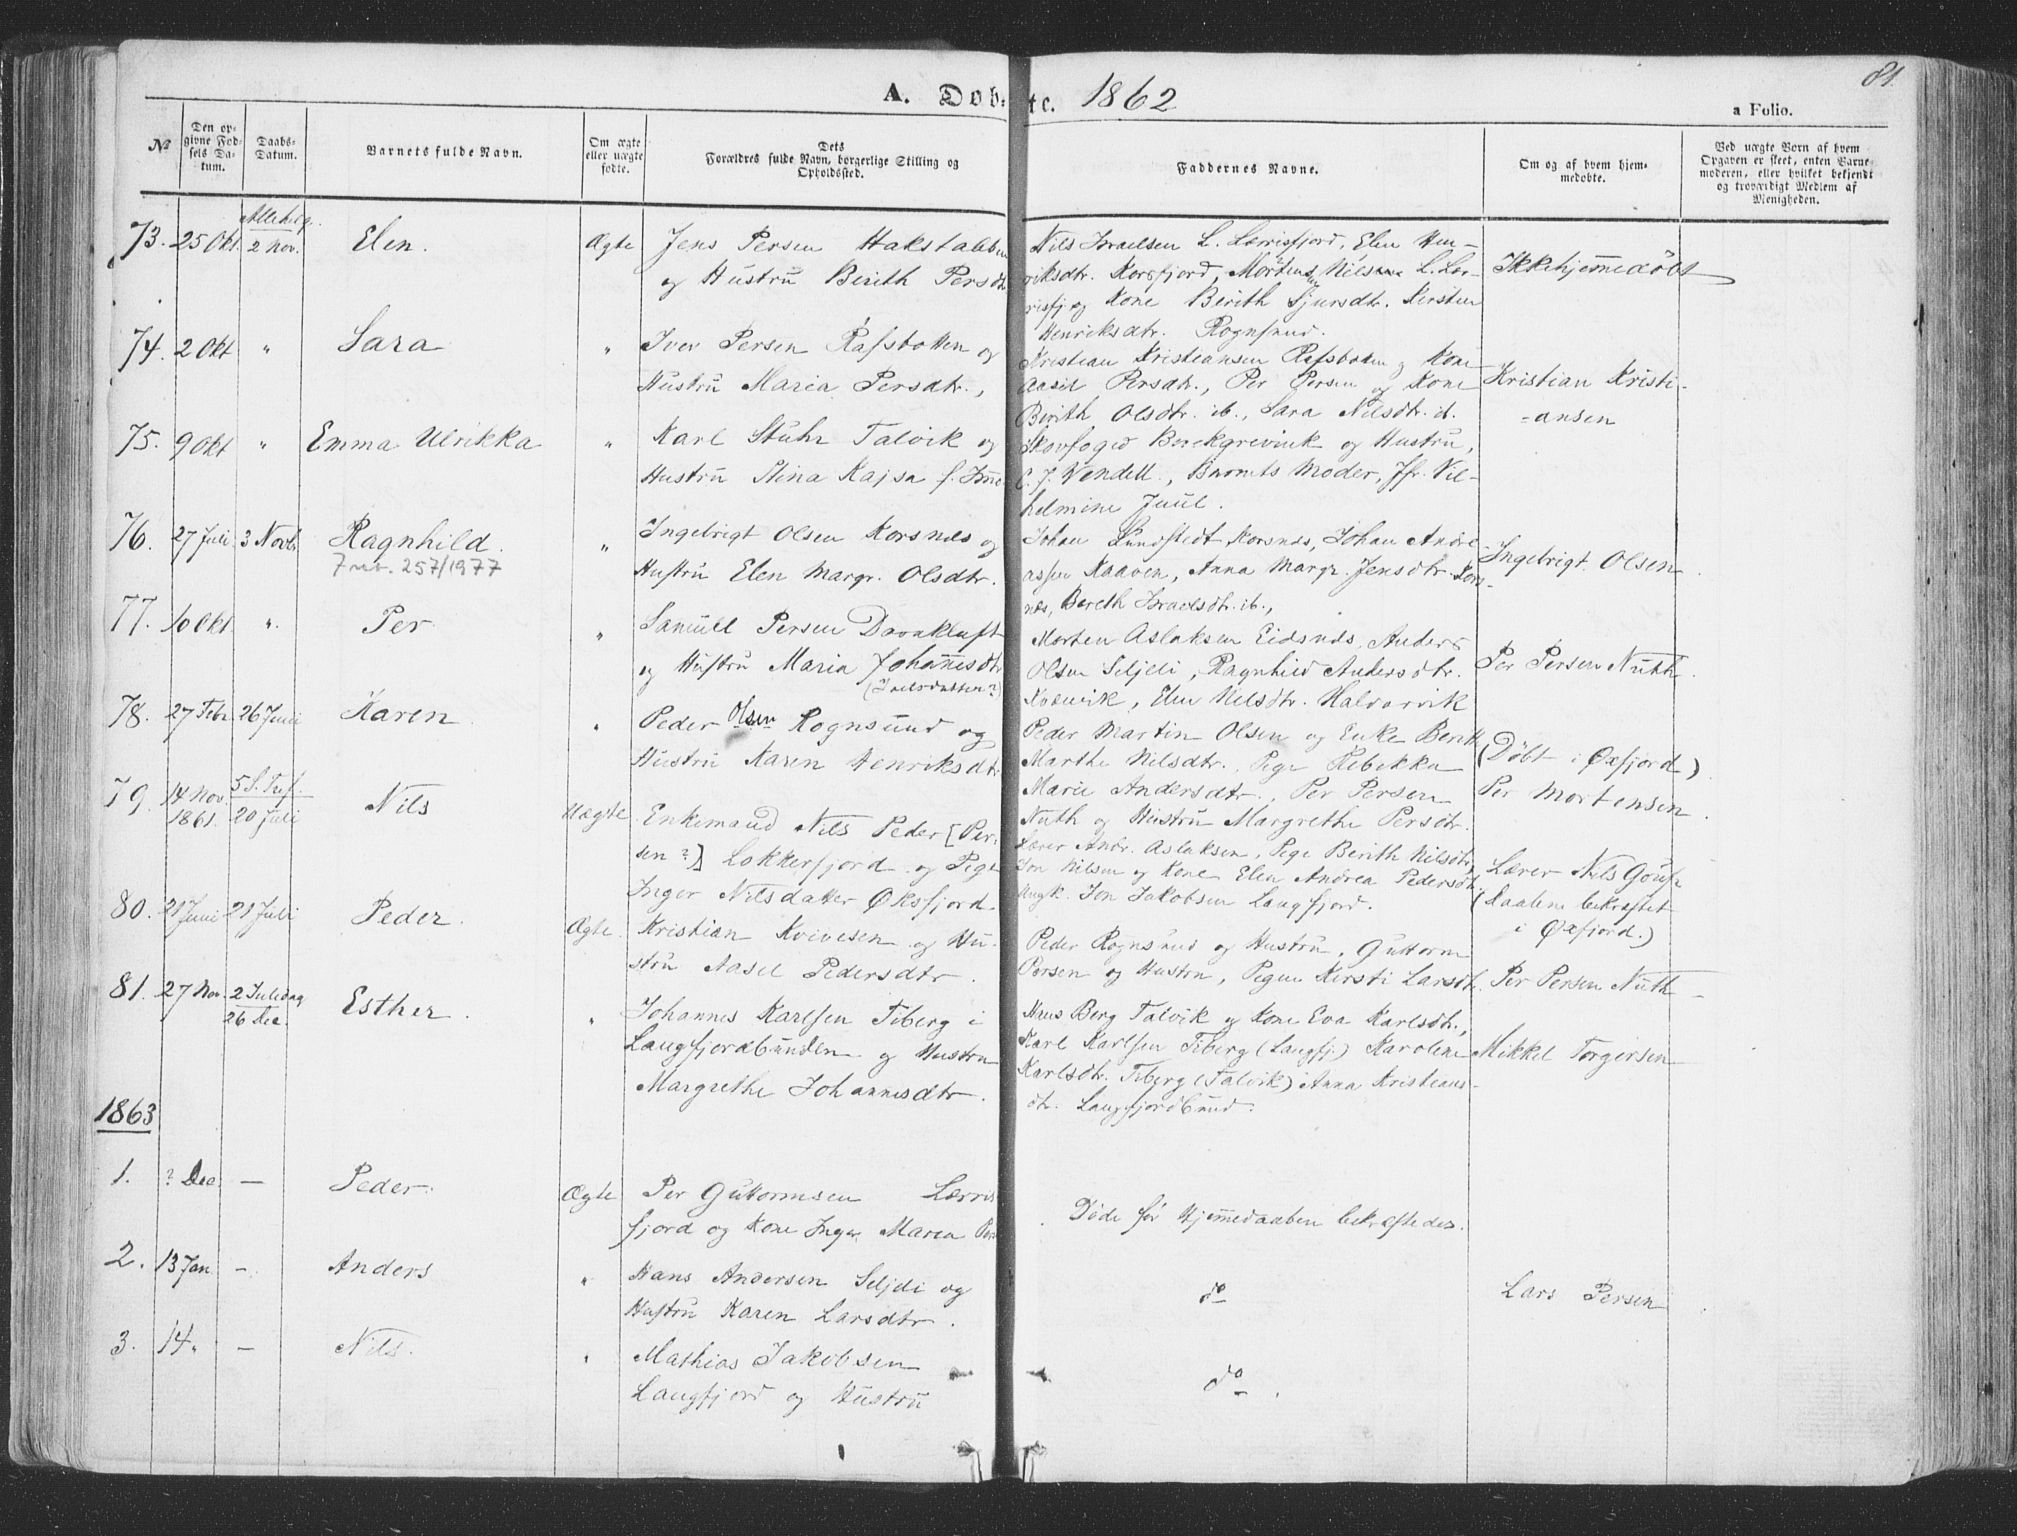 81.
A. Døbte. 1862
a Folio.
№
Den opgivne Fødsels Datum.
Daabs-Datum.
Barnets fulde Navn.
Om ægte eller uægte fødte.
Dets Forældres fulde Navn, borgerlige Stilling og Opholdssted.
Faddernes Navne.
Om og af hvem hjemmedøbte.
Ved uægte Børn af hvem Opgaven er skeet, enten Barnemoderen, eller hvilket bekjendt og troværdigt Medlem af Menigheden.
73. 25 Okt. Allehelg. 2 Nov. Elen. Ægte
Jens Persen Hakstabben
og Hustru Berith Persdtr
Nils Israelsen L. Lærrisfjord, Elen Hen-
riksdtr. Korsfjord, Mortens Nilsen L. Lær-
risfj og Kone Berith Sjursdtr. Kirsten
Henriksdtr. Rognsund.
Ikkehjemmedøbt
74. 2 Okt " Sara "
Iver Persen Rafsbotten og
Hustru Maria Persdtr.,
Kristian Kristiansen Rafsbotten og Kone
Aasil Persdtr., Per Persen og Kone
Berith Olsdtr. ib., Sara Nilsdtr. ib.
Kristian Kristi-
-ansen
75. 9 Okt " Emma Ulrikka "
Karl Stuhr Talvik og
Hustru Stina Kajsa f.
Skovfoged Berekgrevink og Hustru,
C. J. Wendell., Barnets Moder, Jfr. Vil-
helmine Juul.
76. 27 Juli 3 Novb Ragnhild. "
7 nr. 257/1977
Ingebrigt Olsen Korsnæs og
Hustru Elen Margr. Olsdtr.
Johan Lundstedt Korsnæs, Johan Andre-
assen Kaaven, Anna Margr. Jensdtr. Kors-
næs, Bereth Israelsdtr. ib.,
Ingebrigt Olsen
77. 10 Okt ". Per "
Samuel Persen Davakluft
og Hustru Maria Johannesdtr
Morten Aslaksen Eidsnæs, Anders
Olsen Seljeli, Ragnhild Andersdtr.
Kvænvik, Elen Nilsdtr. Halvarvik
Per Persen Nuth.
78. 27 Febr. 26 Juni Karen "
Peder Olsen Rognsund og
Hustru Karen Henriksdtr
Peder Martin Olsen og Enke Berith
Marthe Nilsdtr. Pige Rebekka
Marie Andersdtr., Per Persen
Nuth og Hustru Margrethe Persdtr.
(Døbt i Øxfjord)
79. 14 Nov. 1861. 5 S. Tref. 20 Juli Nils Uægte
Enkemand Nils Peder [Per-
sen?] Lokkerfjord og Pige
Inger Nilsdatter Øksfjord.
Lærer Andr. Aslaksen, Pige Berith Nilsdtr,
Jon Nilsen og Kone Elen Andrea Pedersdtr,
Ungk. Jon Jakobsen Langfjord.
Per Mortensen
80. 21 Juni 21 Juli Peder. Ægte.
Kristian Kvivesen og Hu-
stru Aasel Pedersdtr.
Peder Rognsund og Hustru, Guttorm
Persen og Hustru, Pigen Kirsti Larsdtr.
Lærer Nils Goup
(Daaben bekræftet
i Øxfjord.)
81. 27 Nov. 2 Juledag 26 Dec. Esther. "
Johannes Karlsen Tiberg i
Langfjordbunden og Hustru
Margrethe Johannesdtr.
Hans Berg Talvik og Kone Eva Karlsdtr.,
Karl Karlsen Tiberg (Langfj.) Karoline
Karlsdtr. Tiberg (Talvik) Anna Kristians-
dtr. Langfjordbund.
Per Persen Nuth
Mikkel Torgersen
1863
1. ? Dec — Peder. Ægte
Per Guttormsen Lærris
fjord og Kone Inger Marea Pers
Døde før Hjemmedaaben bekræftedes.
2. 13 Jan — Anders "
Hans Andersen Seljeli og
Hustru Karen Larsdtr.
do
Lars Persen
3. 14 " — Nils. "
Mathias Jakobsen
Langfjord og Hustru
do